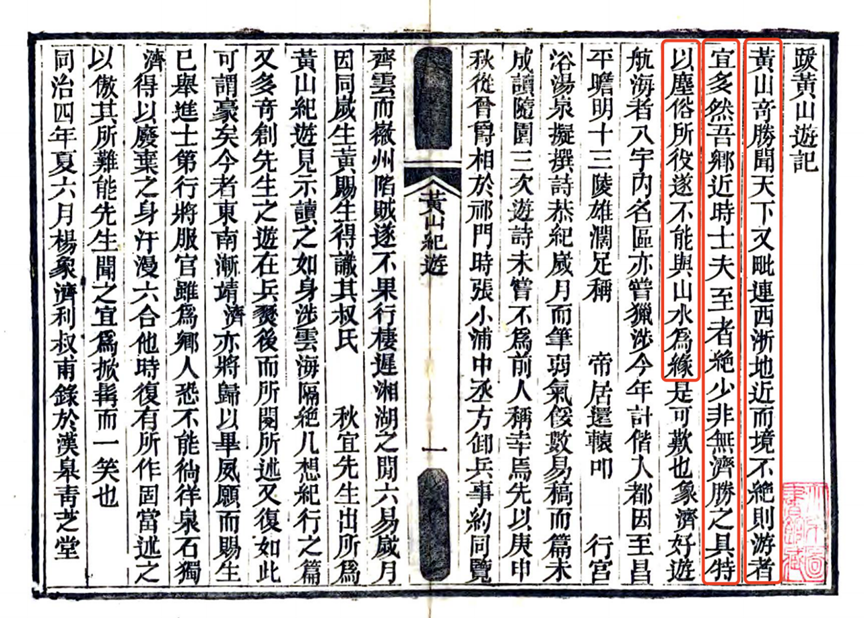 跋黃山遊記
黃山奇勝聞天下又毗連西浙地近而境不絕則游者
宜多然吾鄉近時士夫至者絕少非無濟勝之具特
以塵俗所役遂不能與山水爲緣是可歎也象濟好遊
航海者八宇內名區亦嘗獵涉今年計偕入都因至昌
平瞻明十三陵雄濶足稱 帝居還轅叩 行宮
浴湯泉擬撰詩恭紀歲月而筆弱氣餒數易稿而篇未
成讀隨園三次遊詩未嘗不爲前人稱幸焉先以庚申
秋從晉爵相於祁門時張小浦中丞方卸兵事約同覽
黃山紀遊
一
齊雲而徽州陷賊遂不果行棲遲湘湖之間六易歲月
因同歲生黃賜生得識其叔氏 秋宜先生出所爲
黃山紀遊見示讀之如身涉雲海隔絕几想紀行之篇
又多奇創先生之遊在兵燹後而所閱所述又復如此
可謂豪矣今者東南漸靖濟亦將歸以畢夙願而賜生
已舉進士第行將服官雖爲鄉人恐不能徜徉泉石獨
濟得以廢棄之身汗漫六合他時復有所作固當述之
以傲其所難能先生聞之宜爲掀髯而一笑也
同治四年夏六月楊象濟利叔甫錄於漢皋青芝堂